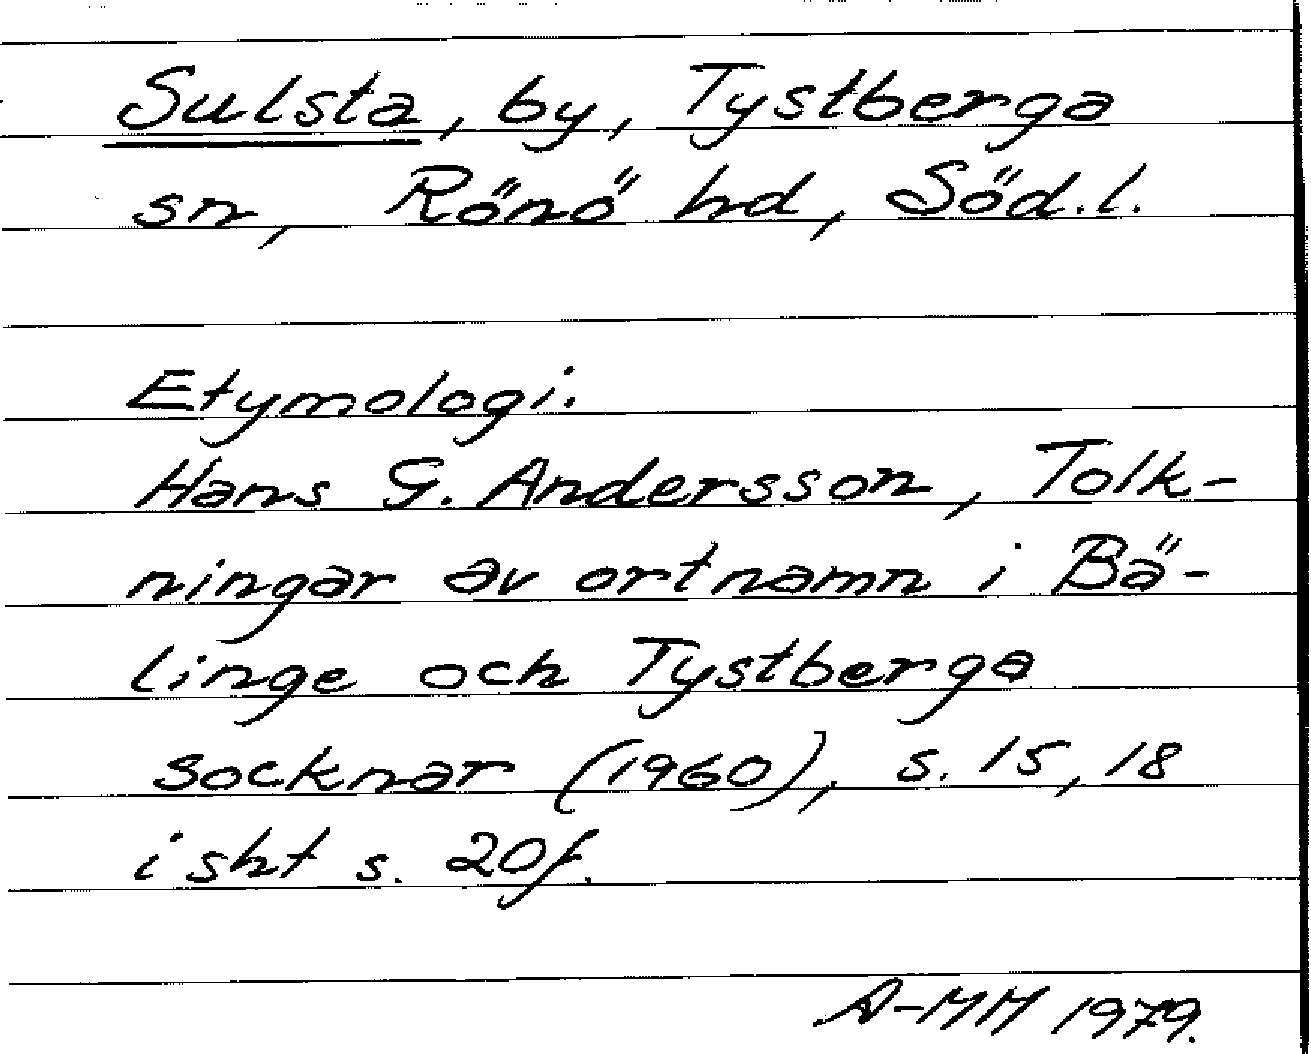 Sulsta, by, Tystberga
sn, Rönö hd, Söd.l.
Etymologi.
Hans G. Andersson, Tolk-
ningar av ortnamn i Bä-
linge och Tystberga
socknar (1960), s. 15, 18
i sht s. 20f.
A-MM 1979.